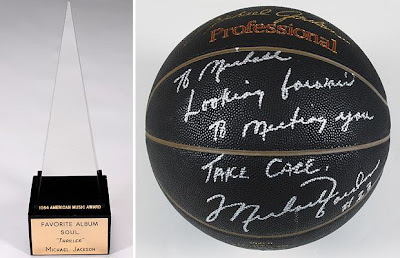 1984 AMERICAN MUSIC AWARD
FAVORITE ALBUM
SOUL
"THRILLER"
MICHAEL JACKSON
Professional
To Michael
Looking forward
To Meeting you
TAKE CARE.
Michael Jordan